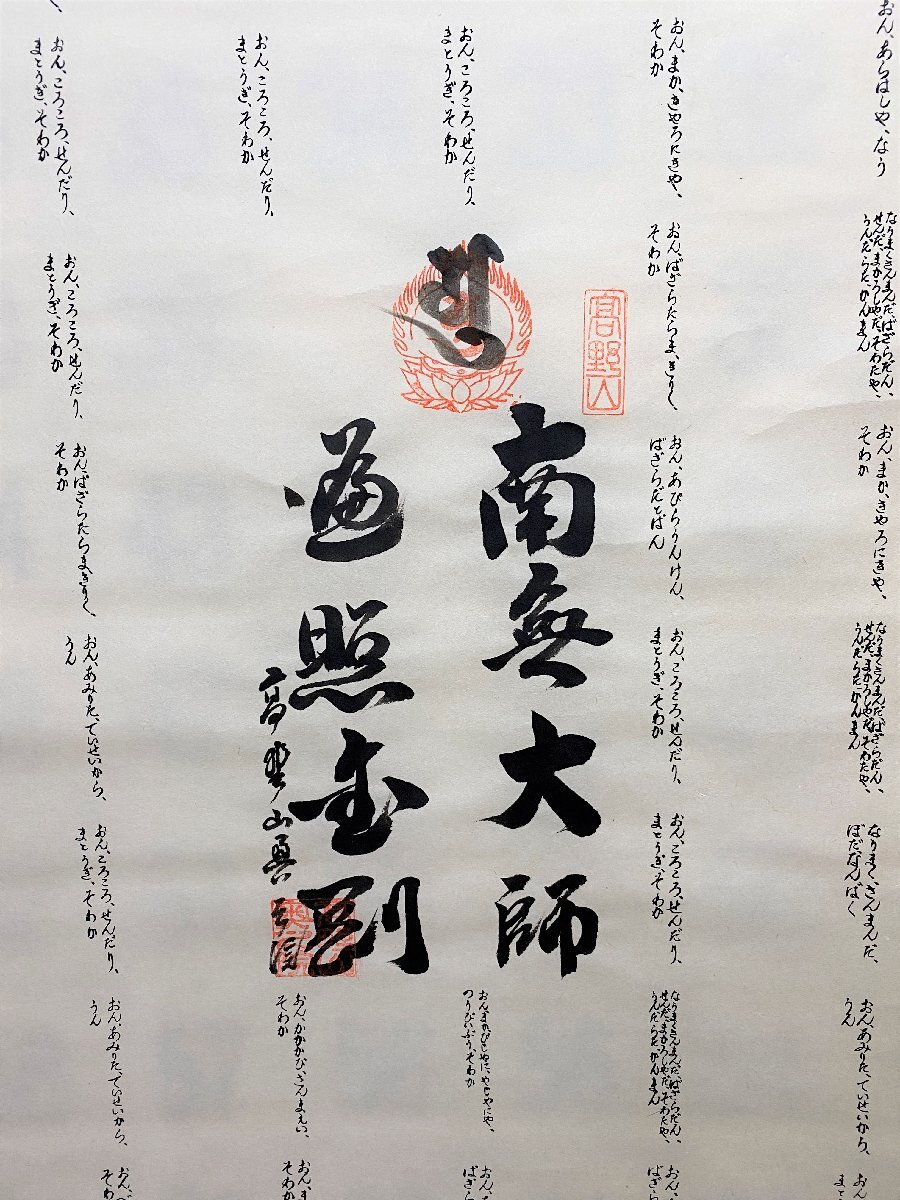 おん、あらはしや、なう
なうまくさんまんだ、ばざらだん、
せんだ、まかろしやだ、そわたや、
うんたらた、かんまん
おん、まか、きやろにきや、
そわか
なうまくさんまんだ、ばざらだん、
せんだ、まかろしやだ、そわたや、
うんたらた、かんまん
なうまく、さんまんだ、
ぼだなん、ばく
おん、あみりた、ていせいから、
うん
おん、まか、きやろにきや、
そわか
おん、ばざらたらま、きりく、
そわか
おん、あびらうんけん、
ばざら、だとばん
おん、ころころ、せんだり、
まとうぎ、そわか
おん、ころころ、せんだり、
まとうぎ、そわか
なうまくさんまんだ、ばざらだん、
せんだ、まかろしやだ、そわたや、
うんたらた、かんまん
おん、ころころ、せんだり、
まとうぎ、そわか
高野山
南無大師
遍照金剛
高野山奥之院
おん、まかびしやに、やしやにや、
つうびいぶう、そわか
おん、ころころ、せんだり、
まとうぎ、そわか
おん、かかかび、さんまえい、
そわか
おん、ころころ、せんだり、
まとうぎ、そわか
おん、ころころ、せんだり、
まとうぎ、そわか
おん、ばざらたらま、きりく、
そわか
おん、あみりた、ていせいから、
うん
おん、ころころ、せんだり、
まとうぎ、そわか
おん、あみりた、ていせいから、
うん